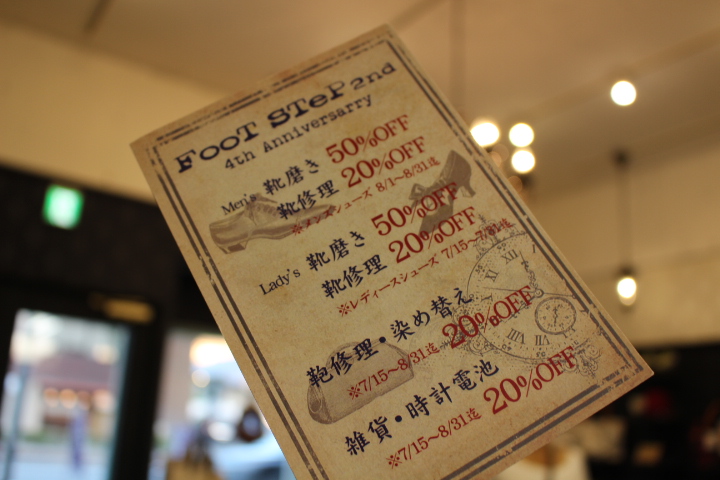 FooT STeP 2nd
4th Anniversarry
Men's 靴磨き 50%OFF
靴修理 20%OFF
※メンズシューズ 8/1～8/31迄
Lady's 靴磨き 50%OFF
靴修理 20%OFF
※レディースシューズ 7/15～7/31迄
鞄修理・染め替え
※7/15～8/31迄 20%OFF
雑貨・時計電池
※7/15～8/31迄 20%OFF